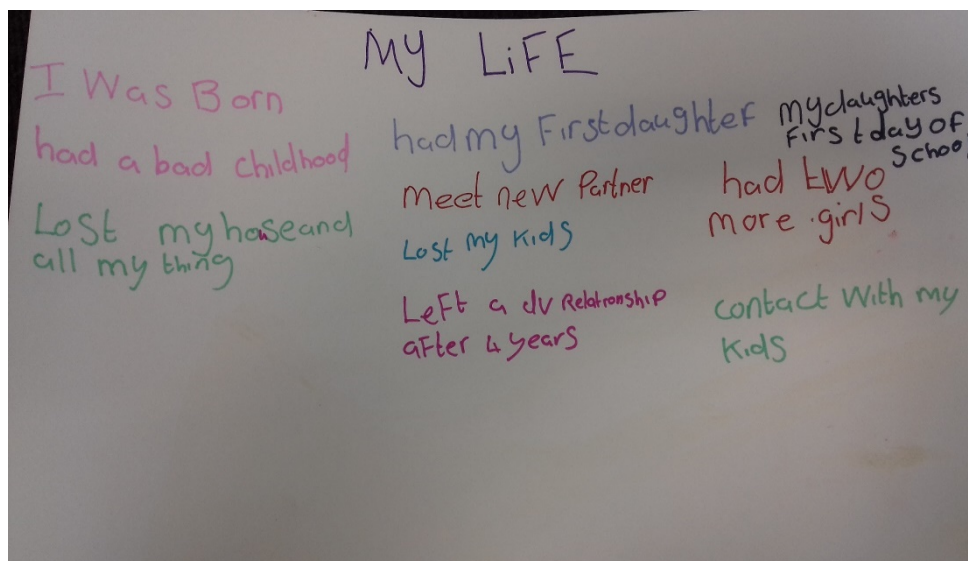 MY LiFE
I Was Born
had a bad childhood
Lost my house and
all my thing
had my First daughter
meet new Partner
Lost my Kids
LeFt a dv Relationship
aFter 4 years
my daughters
First day OF
School
had two
more girls
contact with my
Kids